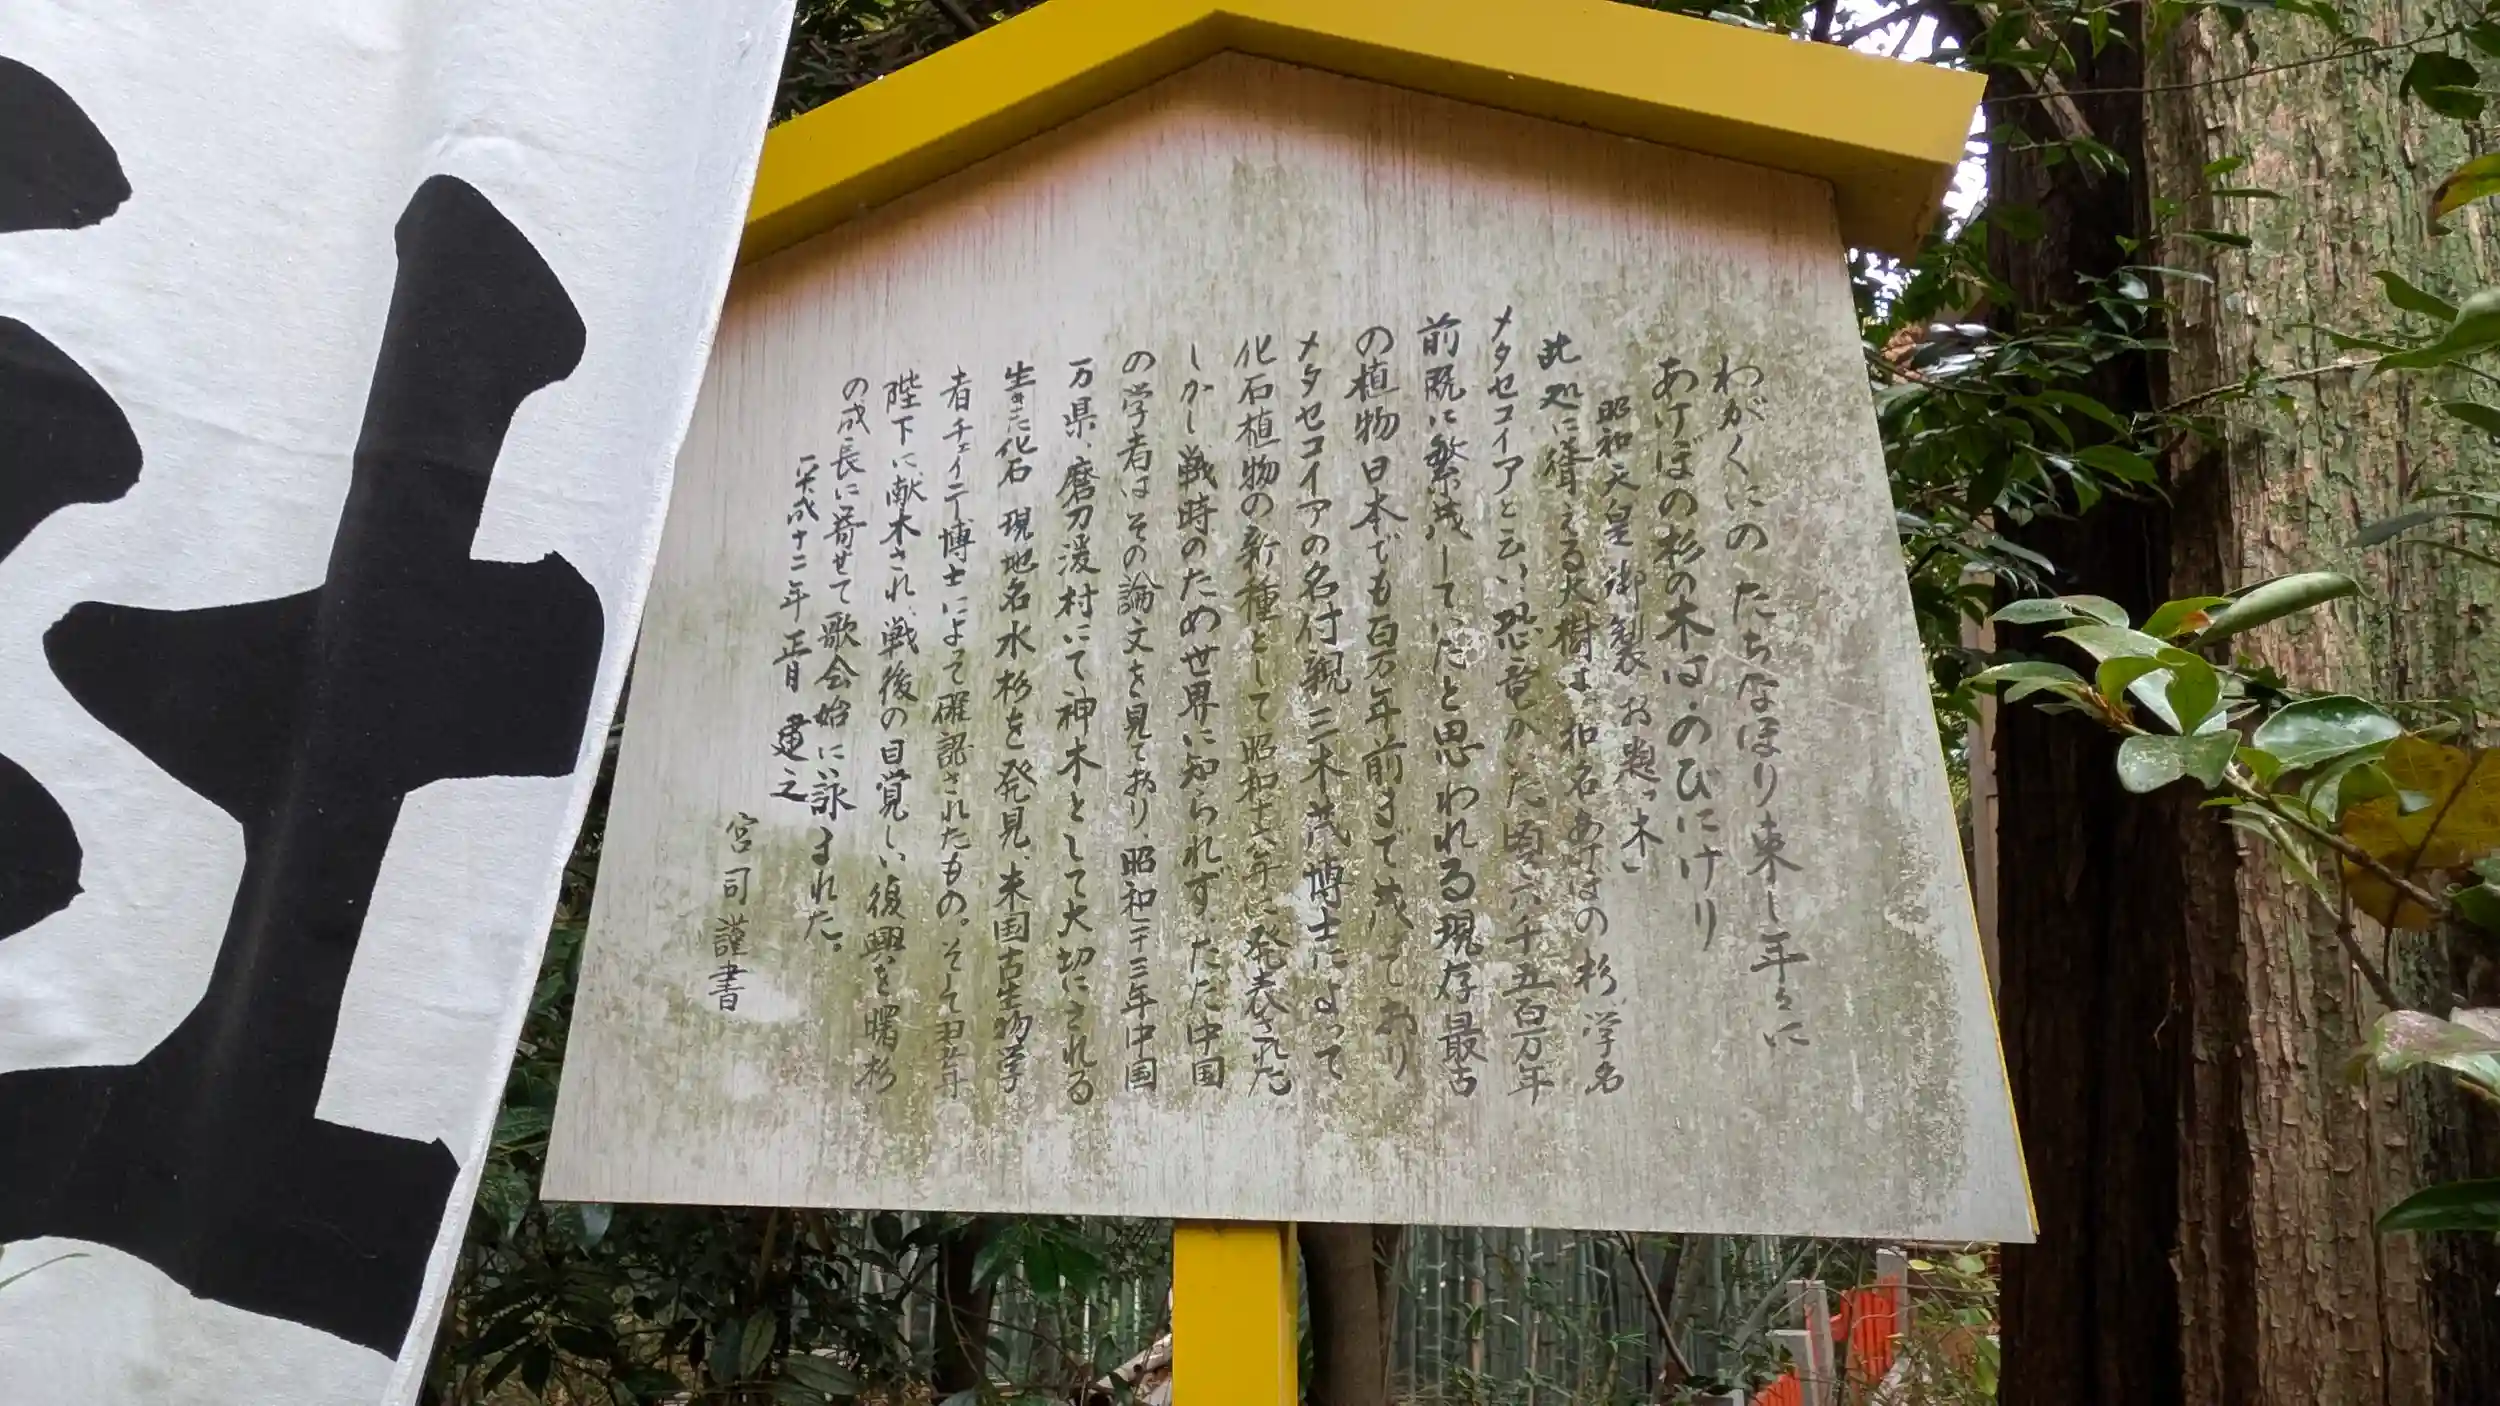 わがくにの たちなほり来し年々に
あけぼの杉の木は のびにけり
昭和天皇御製 お題“木”
此処に聳える大樹は、和名あけぼの杉、学名
メタセコイアと云い、恐竜がいた頃、六千五百万年
前既に繁茂していたと思われる現存最古
の植物 日本でも百万年前まで茂っており
メタセコイアの名付親 三木茂博士によって
化石植物の新種として昭和十六年に発表された
しかし戦時のため世界に知られず、ただ中国
の学者はその論文を見ており、昭和二十三年中国
万県、磨刀渓村にて神木として大切にされる
生きた化石 現地名水杉を発見、米国古生物学
者チェイニー博士によって確認されたもの。そして翌年
陛下に献木され、戦後の目覚しい復興を曙杉
の成長に寄せて歌会始に詠まれた。
平成十二年正月 建之
宮司 謹書